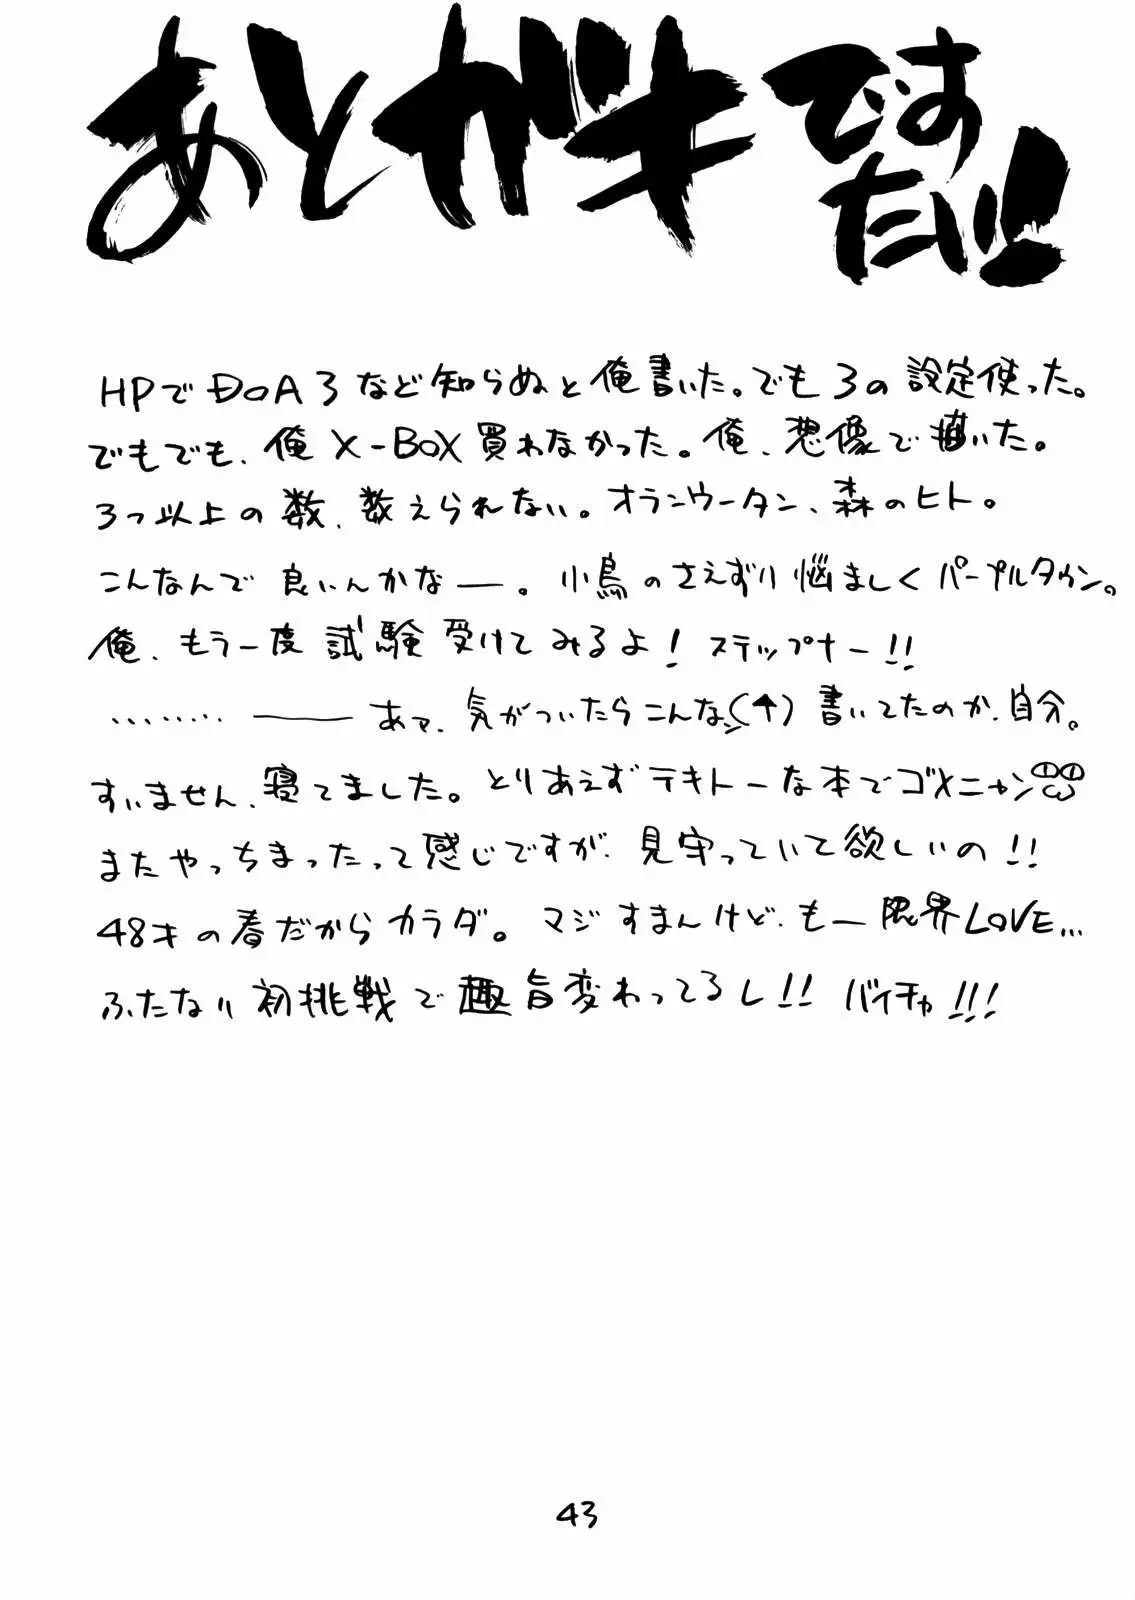 あとがきですたい!!
HPでDOA3など知らぬと俺書いた。でも3の設定使った。
でもでも、俺X-BOX買わなかった。俺、想像で描いた。
3つ以上の数、数えられない。オランウータン、森のヒト。
こんなんで良いんかなー。小鳥のさえずり悩ましくパープルタウン。
俺、もう一度試験受けてみるよ!ステップナー!!
……… ―― あァ、気がついたらこんな(↑)書いてたのか、自分。
すいません、寝てました。とりあえずテキトーな本でゴメニャン
またやっちまったって感じですが、見守っていて欲しいの!!
48才の春だからカラダ。マジすまんけど、もー限界LOVE…
ふたなり初挑戦で趣旨変わってるし!!バイチャ!!!
43